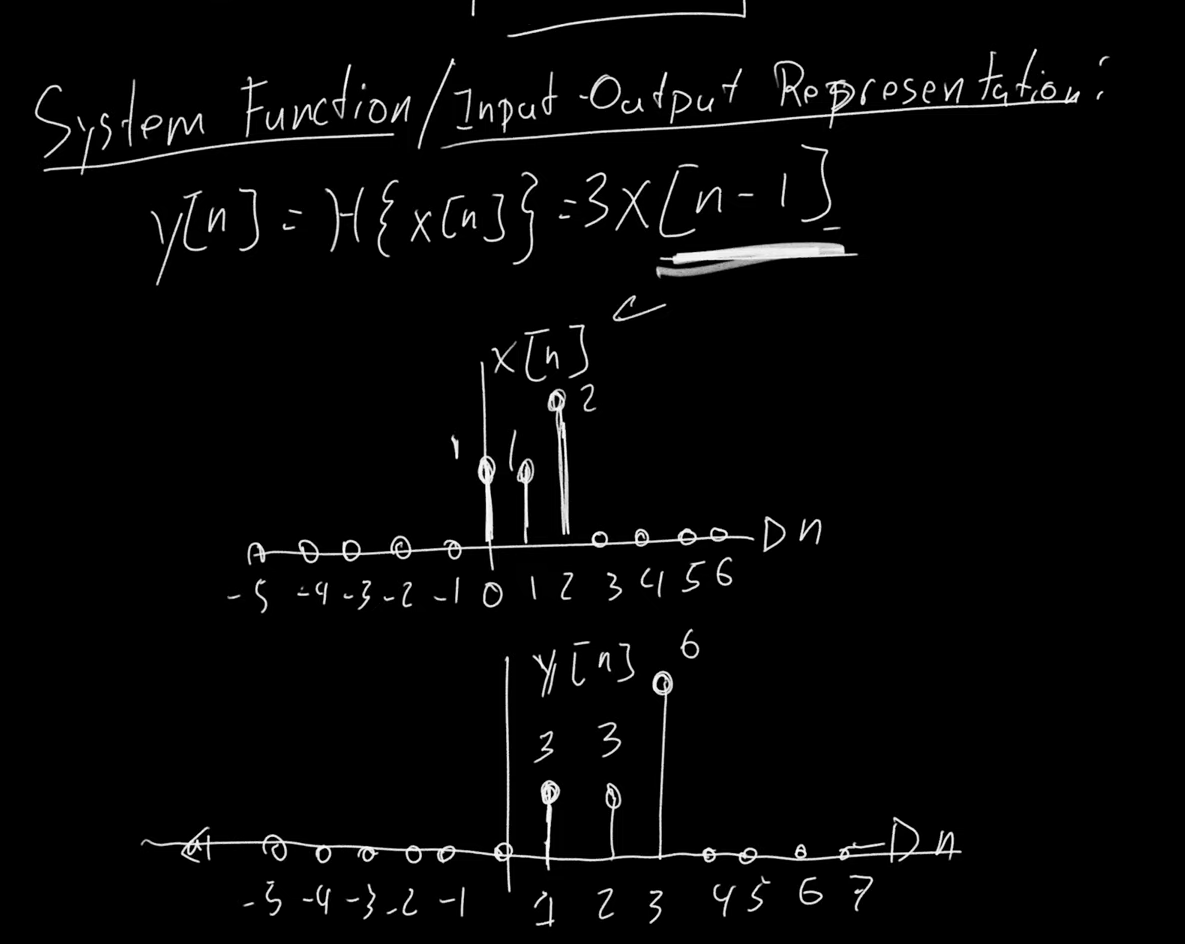 System Function/Input-Output Representation:
y[n] = H{x[n]} = 3x[n-1]
x[n]
2
1 1
n
-5 -4 -3 -2 -1 0 1 2 3 4 5 6
y[n] 6
3 3
n
-5 -4 -3 -2 -1 1 2 3 4 5 6 7